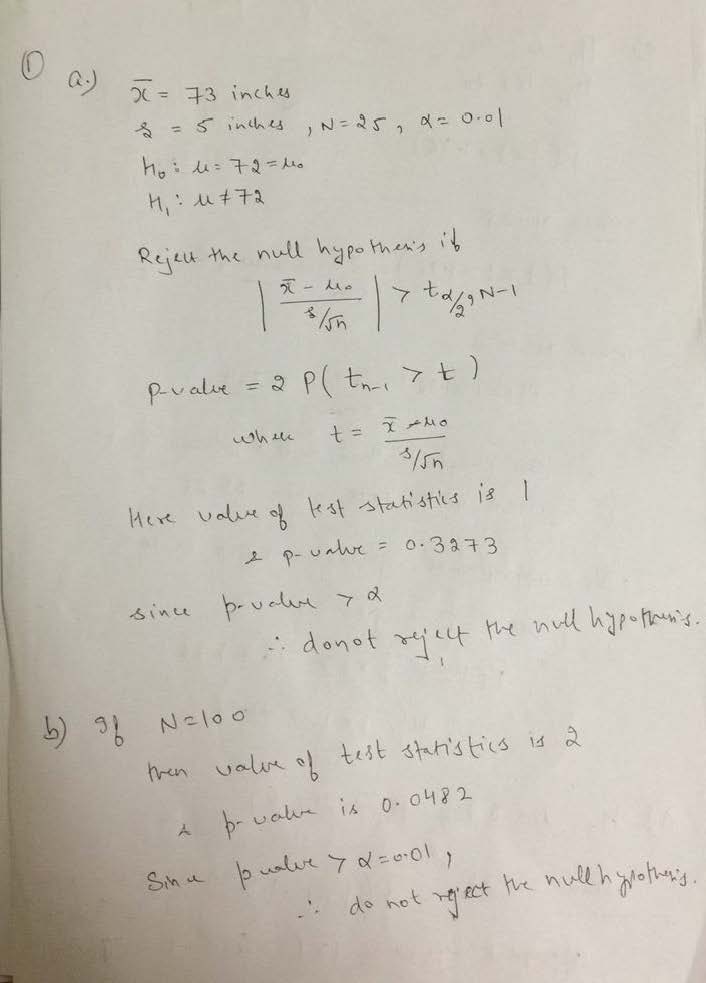 ① a.)
x̄ = 73 inches
s = 5 inches, N=25, α= 0.01
H₀: μ= 72 = μ₀
H₁: μ≠72
Reject the null hypothesis if
| (x̄ - μ₀)/(s/√n) | > t α/2, N-1
p-value = 2 P( tₙ₋₁ > t )
where t = (x̄ - μ₀)/(s/√n)
Here value of test statistics is 1
& p-value = 0.3273
since p-value > α
∴ donot reject the null hypothesis.
b) If N=100
then value of test statistics is 2
& p-value is 0.0482
Since pvalue > α=0.01,
∴ do not reject the null hypothesis.